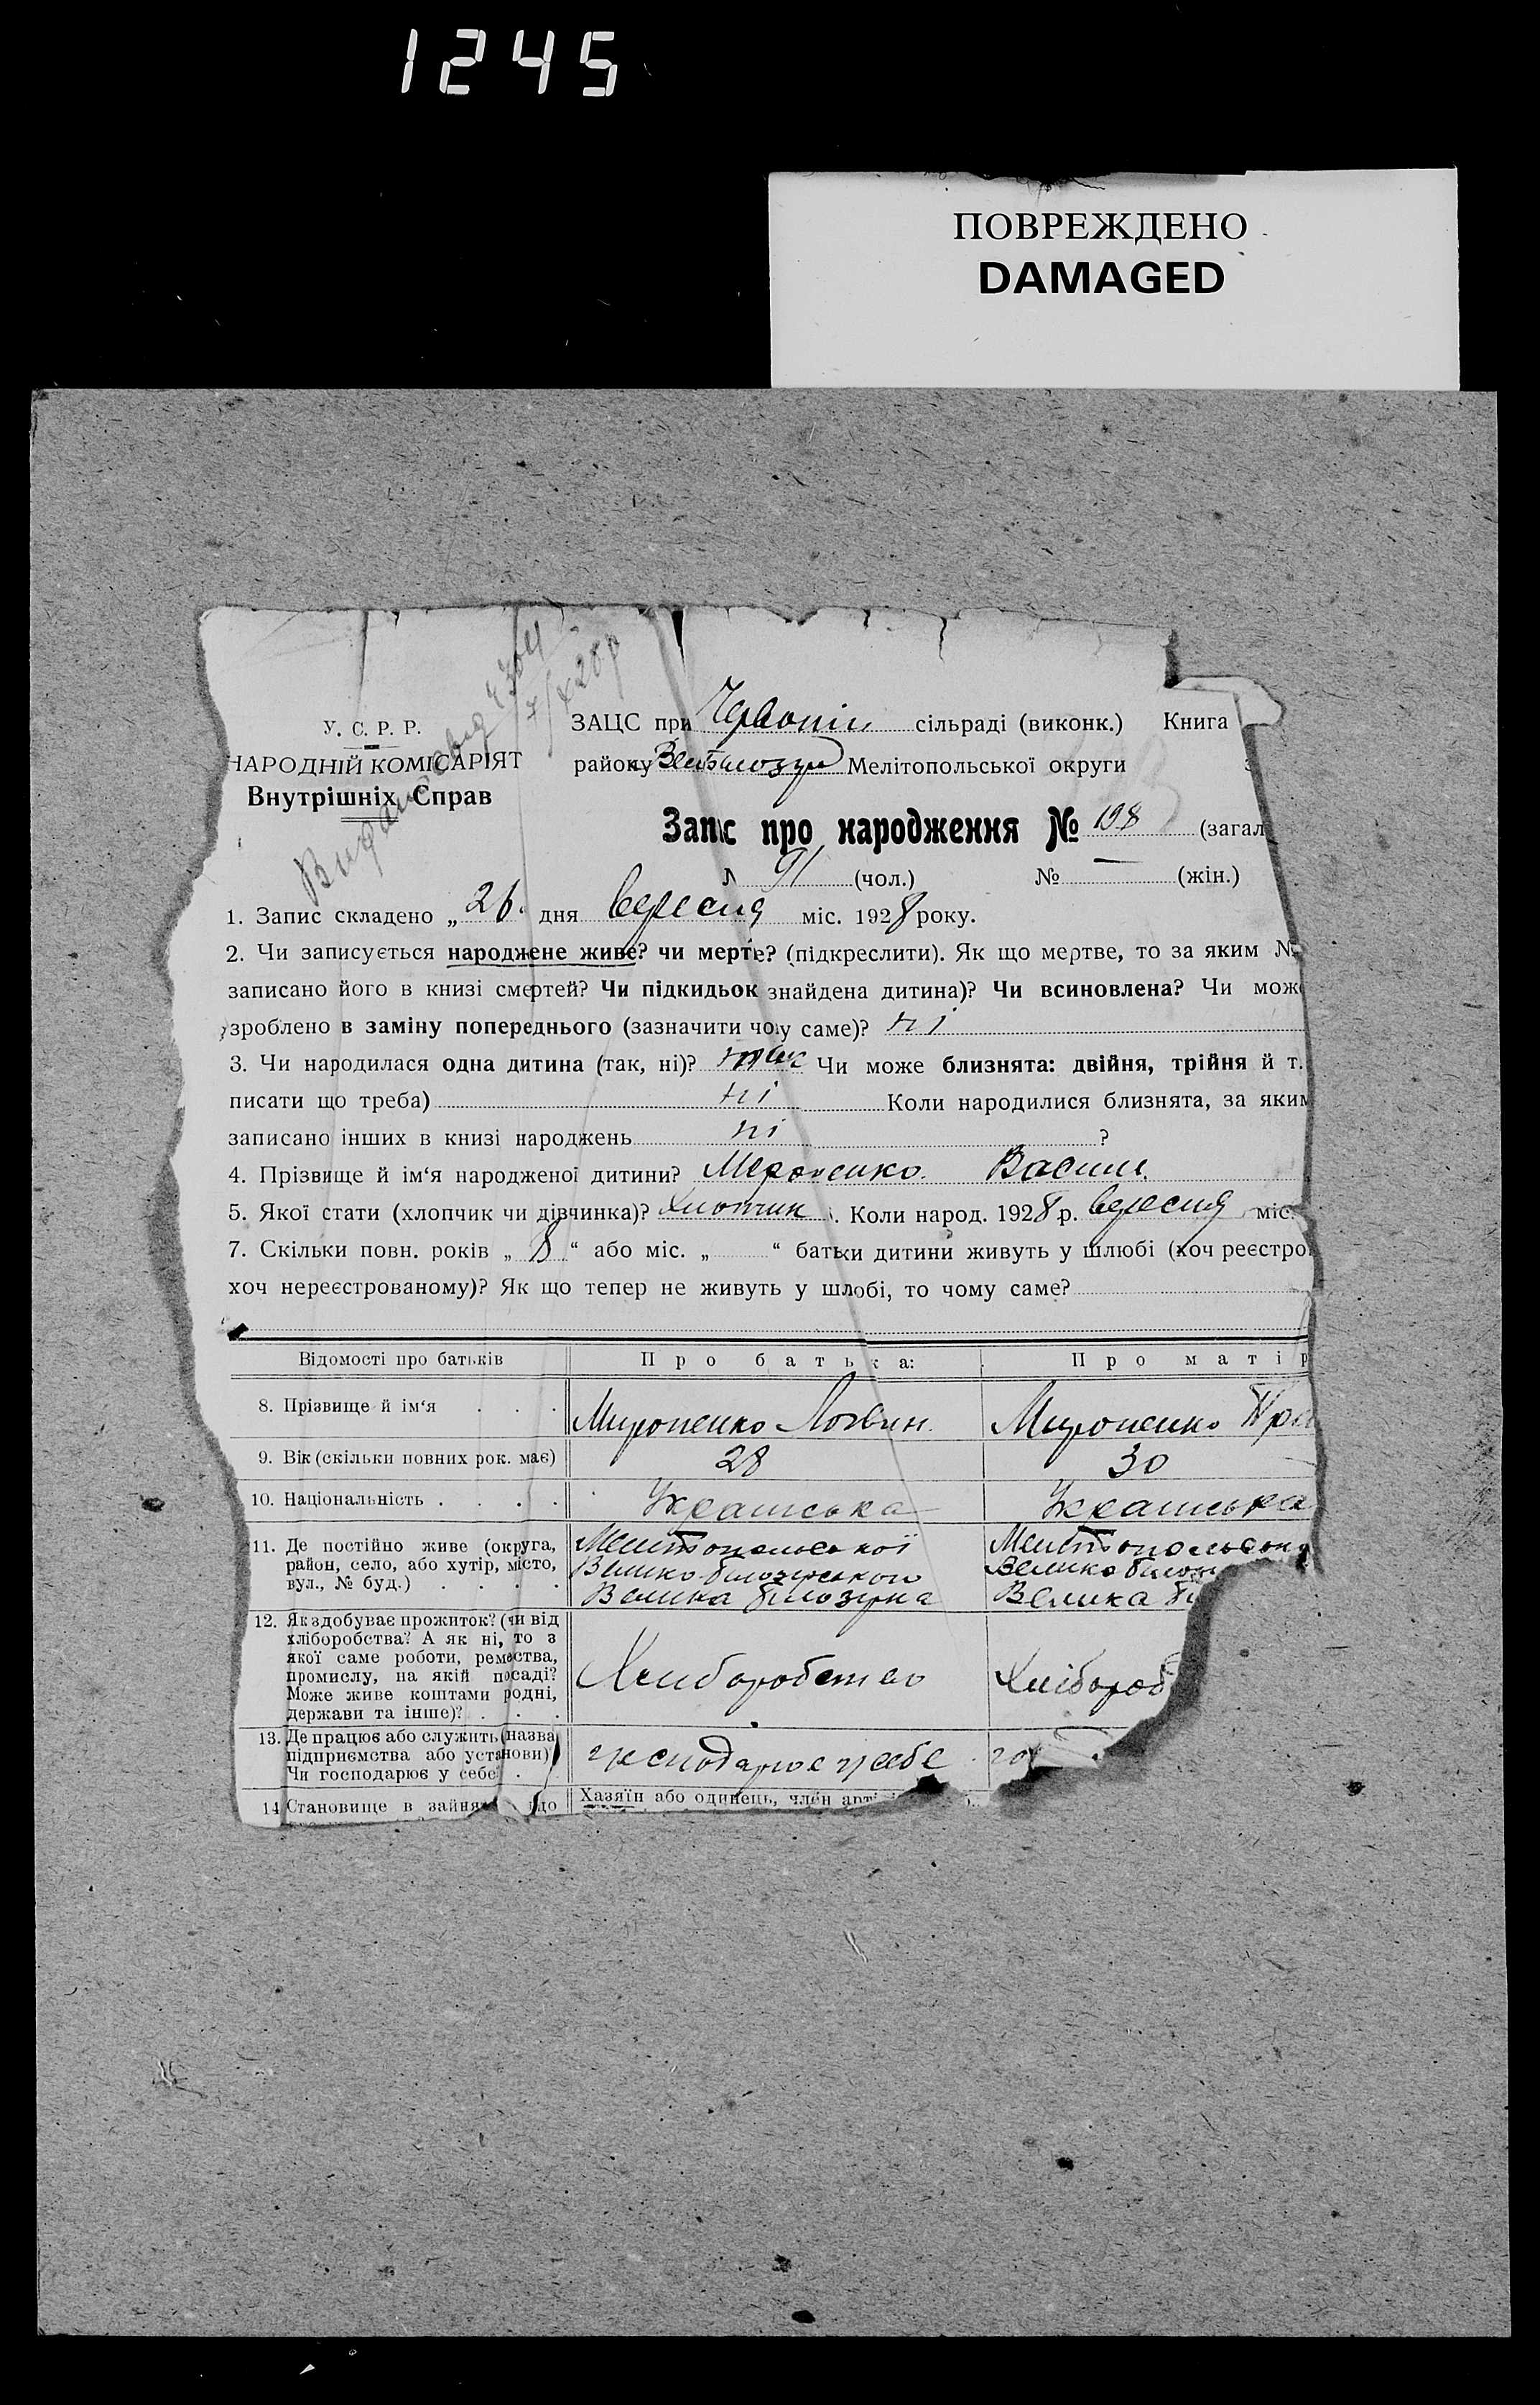 1245
ПОВРЕЖДЕНО
DAMAGED
У. С. Р. Р.
НАРОДНІЙ КОМІСАРІЯТ
Внутрішніх Справ
ЗАЦС при сільраді (виконк.) Книга
району Мелітопольської округи
Запис про народження № 198 (загал
91 (чол.) № — (жін.)
1. Запис складено „26“ дня вересня міс. 1928 року.
2. Чи записується народжене живе? чи мертве? (підкреслити). Як що мертве, то за яким №
записано його в книзі смертей? Чи підкидьок знайдена дитина)? Чи всиновлена? Чи може
зроблено в заміну попереднього (зазначити чому саме)? ні
3. Чи народилася одна дитина (так, ні)? так Чи може близнята: двійня, трійня й т.
писати що треба) ні Коли народилися близнята, за яким
записано інших в книзі народжень ні ?
4. Прізвище й ім‘я народженої дитини? Мироненко Васил
5. Якої стати (хлопчик чи дівчинка)? Хлопчик. Коли народ. 1928 р. вересня міс.
7. Скільки повн. років „8“ або міс. „ “ батьки дитини живуть у шлюбі (хоч реєстро
хоч нереєстрованому)? Як що тепер не живуть у шлюбі, то чому саме?
Відомості про батьків Про батька: Про матір
8. Прізвище й ім‘я . . . Мироненко Логвин Мироненко
9. Вік (скільки повних рок. має) 28 30
10. Національність . . . . Українська Українська
11. Де постійно живе (округа, Мелітопольської Мелітопольської
район, село, або хутір, місто, Велико-білозірського Велико білоз
вул., № буд.) . . . . Велика білозірка Велика бі
12. Як здобуває прожиток? (чи від
хліборобства? А як ні, то з
якої саме роботи, ремества,
промислу, на якій посаді? Хліборобство Хлібороб
Може живе коштами родні,
держави та інше)? . . .
13. Де працює або служить (назва
підприємства або установи) господарює у себе го
Чи господарює у себе .
14 Становище в занят що Хазяїн або одинець, член арті